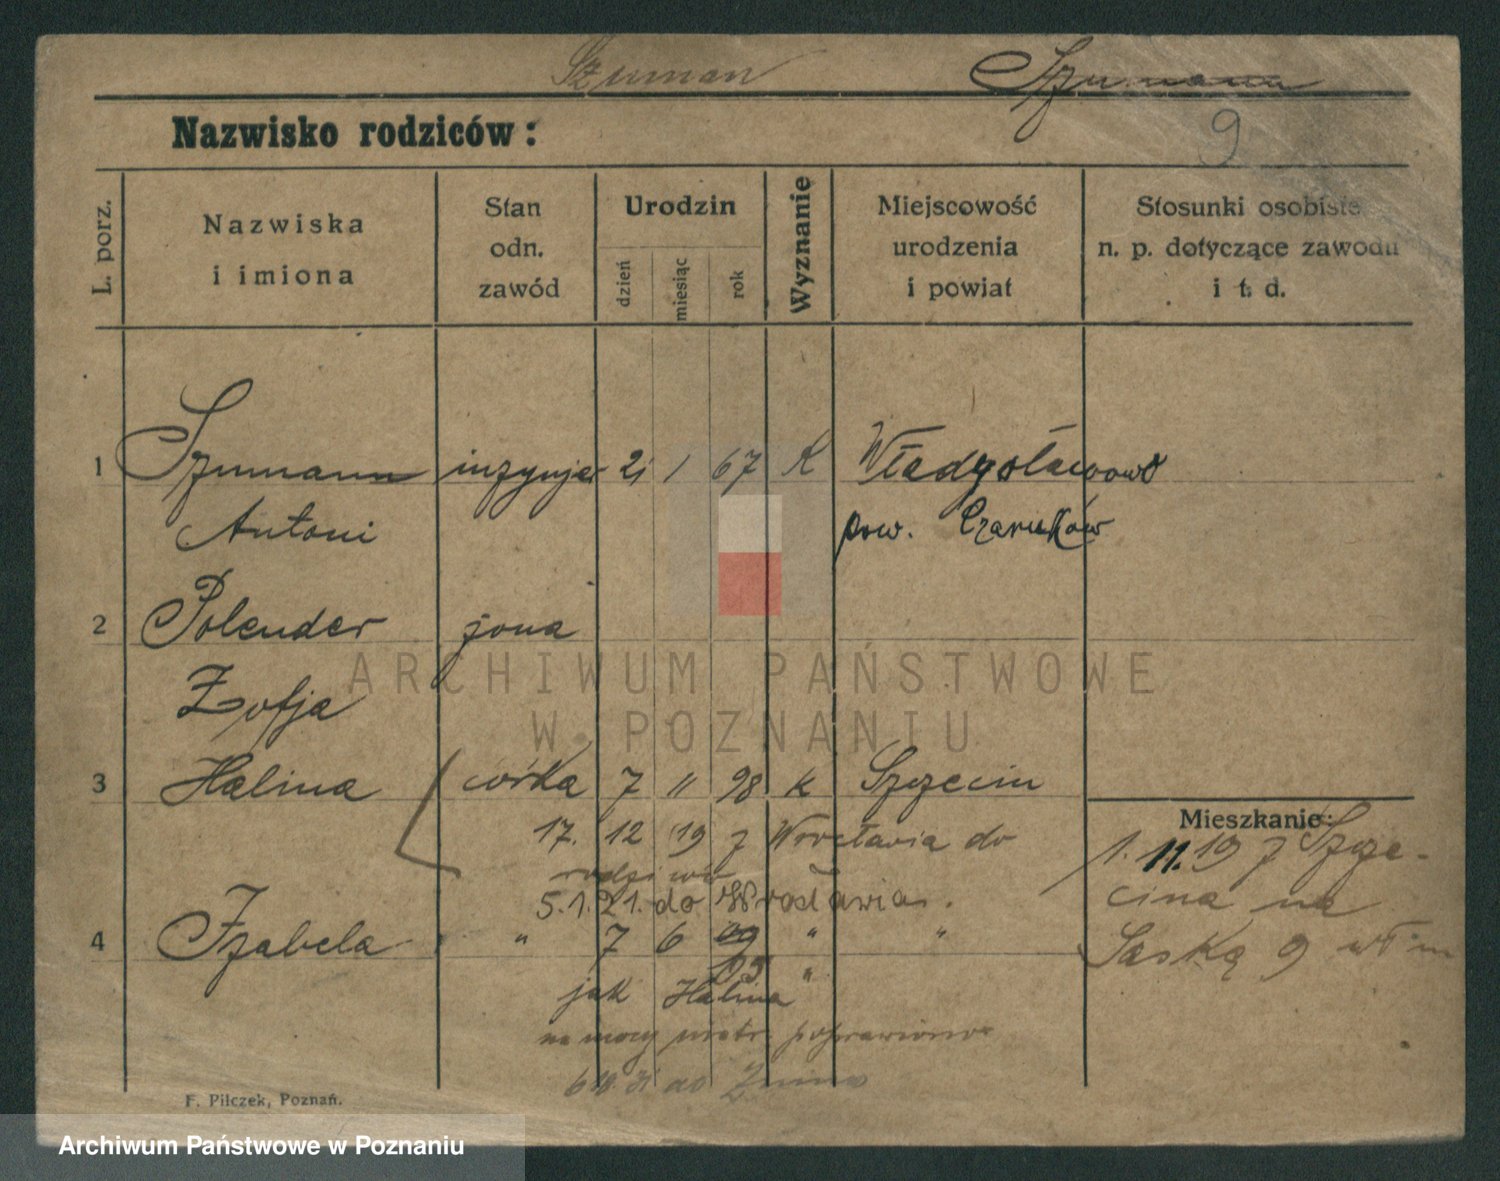 Szuman Szumann
Nazwisko rodziców:
9
L. porz.
Nazwiska
i imiona
Stan
odn.
zawód
Urodzin
dzień
miesiąc
rok
Wyznanie
Miejscowość
urodzenia
i powiat
Stosunki osobiste
n. p. dotyczące zawodu
i t. d.
1 Szumann inżynjer 21 1 67 K Władysławowo
Antoni pow. Czarnków
2 Polender żona
Zofja
3 Halina córka 7 11 98 k Szczecin
Mieszkanie:
17. 12 19 z Wrocławia do
rodziców
5.1.21. do Wrocławia.
4 Izabela " 7 6 09 " "
05 "
jak Halina
na mocy metr. poprawiono
do Żnina
1. 11. 19 z Szcze-
cina na
Saską 9
F. Pilczek, Poznań.
ARCHIWUM PAŃSTWOWE
W POZNANIU
Archiwum Państwowe w Poznaniu